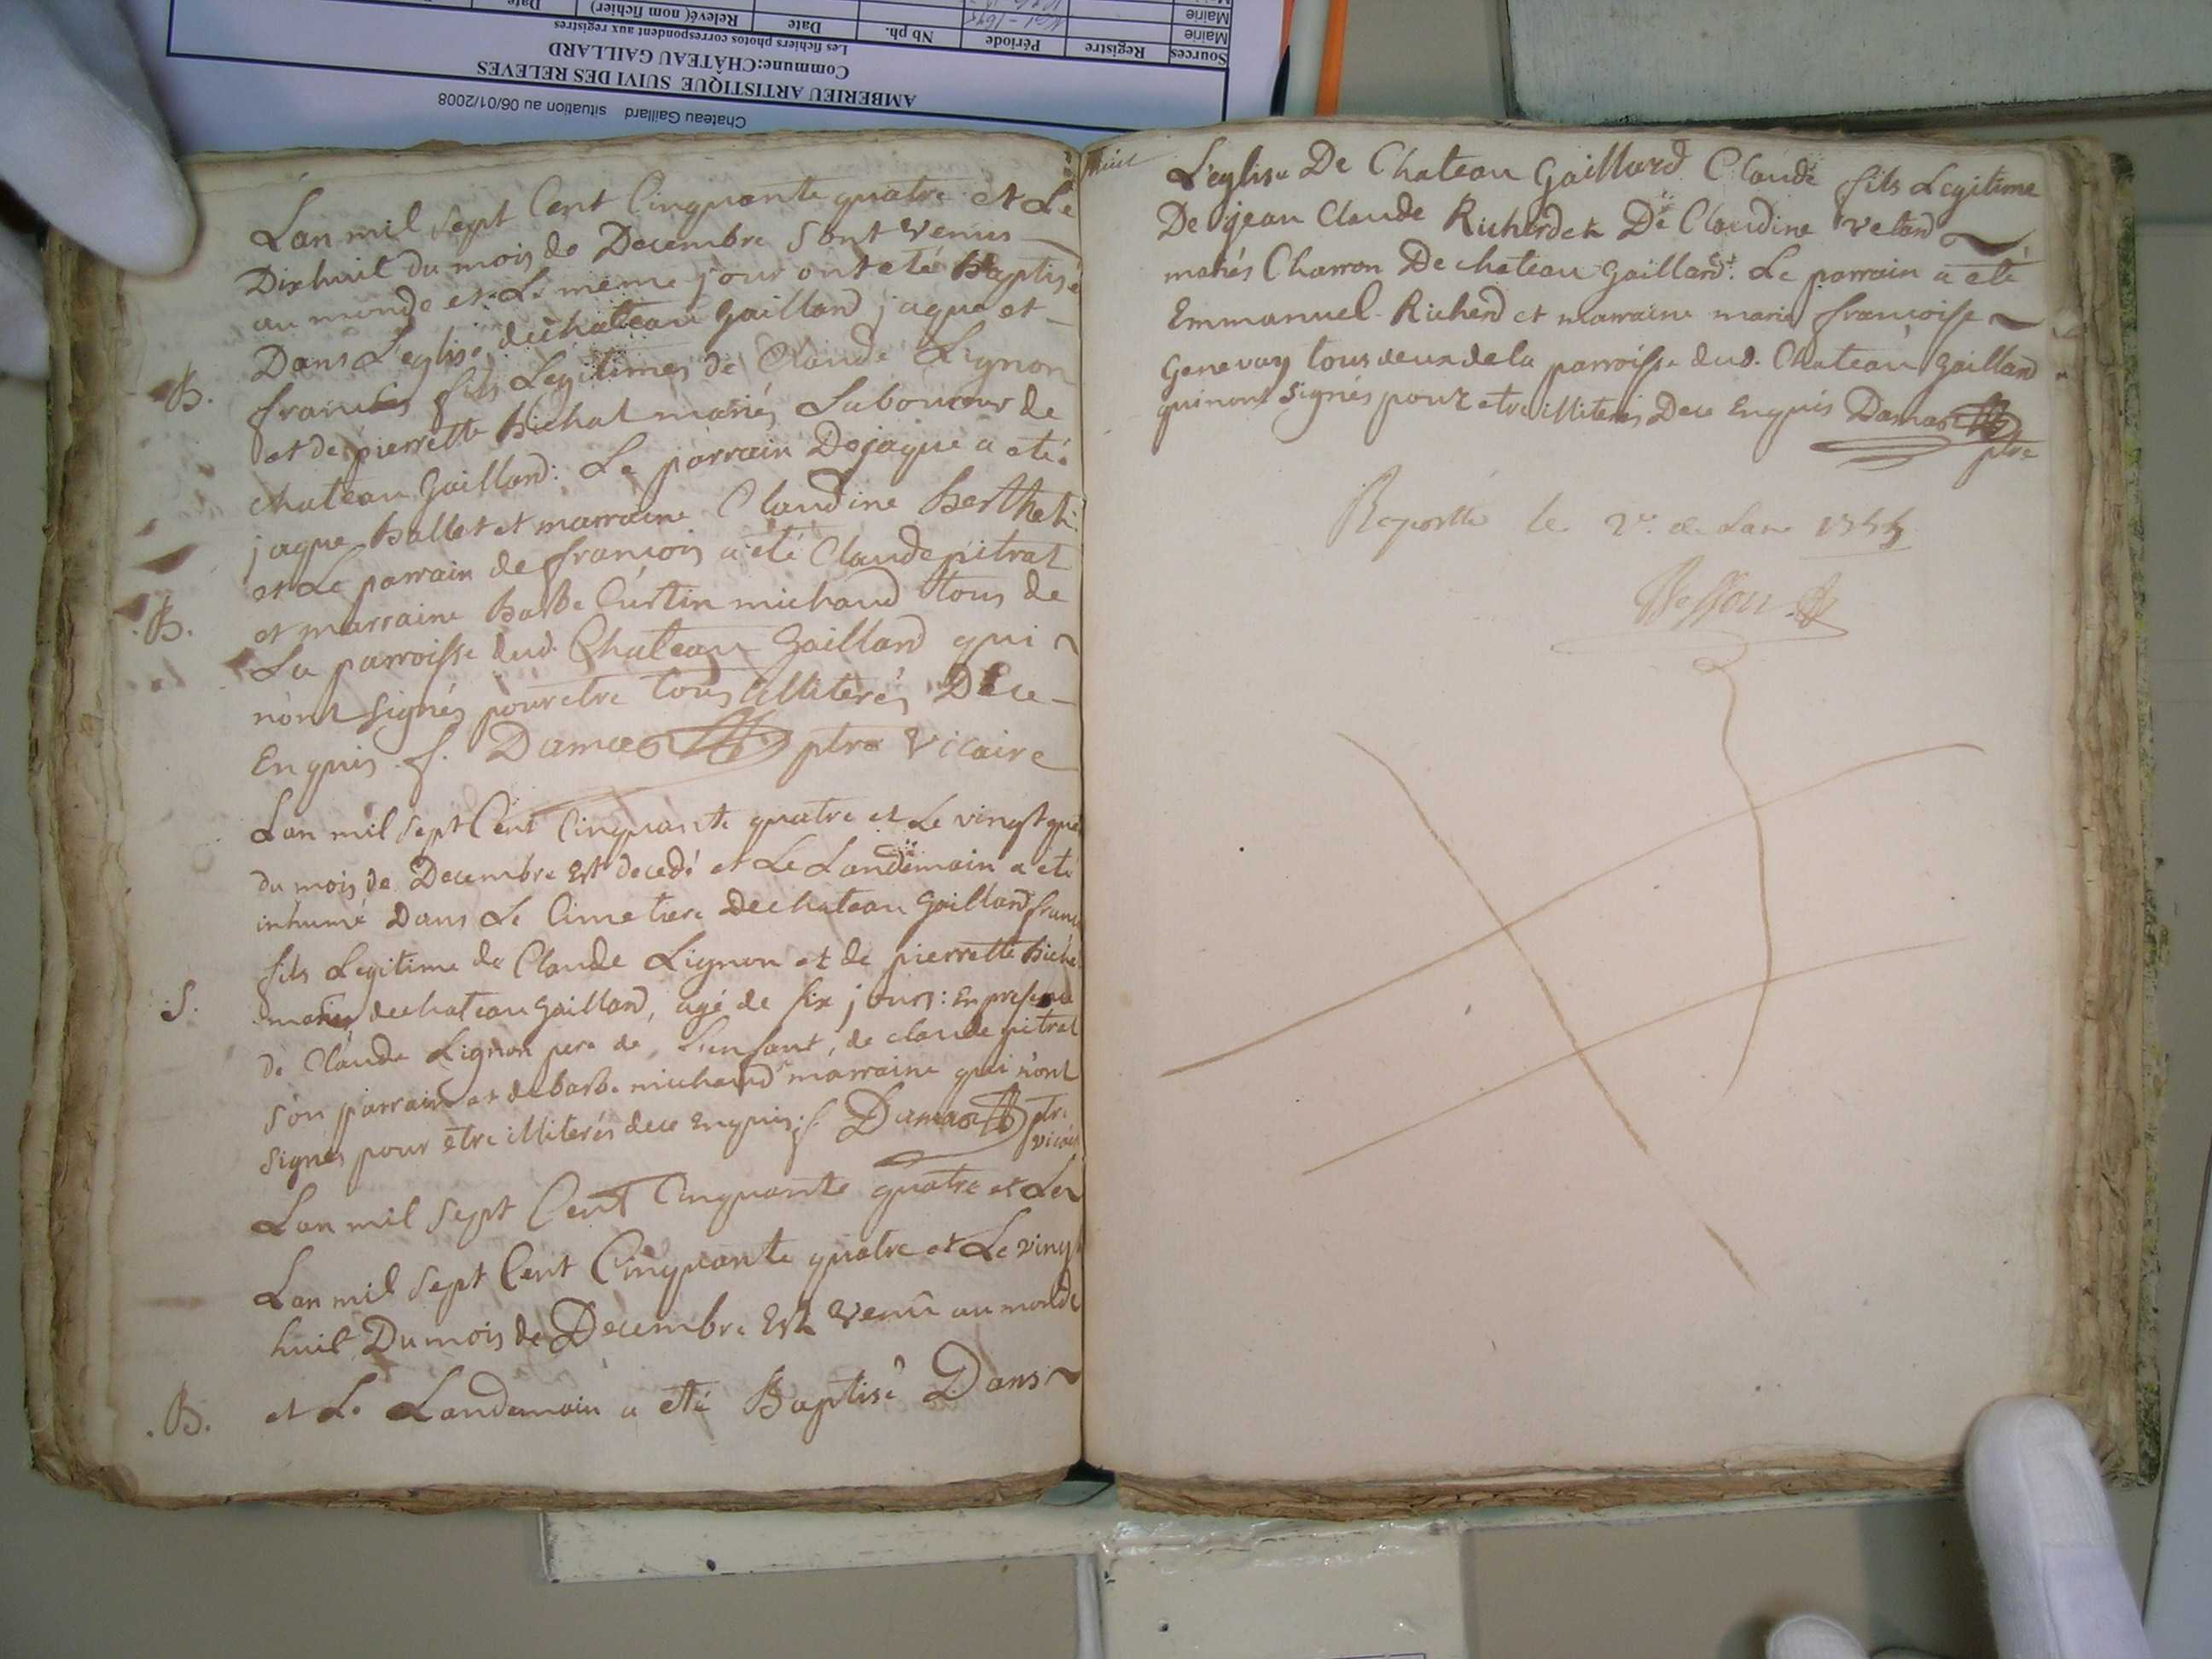 Chateau Gaillard situation au 06/01/2008
AMBERIEU ARTISTIQUE SUIVI DES RELEVES
Commune:CHÂTEAU GAILLARD
Les fichiers photos correspondent aux registres
Sources Registre Période Nb ph. Date Relevé( nom fichier) Date
Mairie
Mairie
Lan mil sept Cent Cinquante quatre et Le
Dixhuit du mois de Decembre sont venus
au monde et Le meme jour ont eté Baptisé
Dans L'eglise dechateau Gaillard jaque et
B. francois fils Legitimes de Claude Lignon
et de pierrette Bichat mariés Laboureur de
chateau Gaillard: Le parrain Dejaque a eté
jaque Ballet et marraine Claudine Berthet
et Le parrain de francois a eté Claude pitrat
B. et marraine Barbe Curtin michaud tous de
La parroisse dud. Chateau Gaillard qui
nont signés pouretre tous illiterés Dece
Enquis f. Damas ptre Vicaire
Lan mil sept Cent Cinquante quatre et Le vingt qua
du mois de Decembre Est decedé et Le Landemain a eté
inhumé Dans Le Cimetiere Dechateau Gaillard franc
fils Legitime de Claude Lignon et de pierrette Bicha
S. mariés dechateau Gaillard, agé de six jours: En presence
de Claude Lignon pere de L'enfant, de claude pitrat
son parrain et de barbe michaud marraine qui n'ont
signés pour etre illiterés dece Enquis f. Damas ptre
vicaire
Lan mil sept Cent Cinquante quatre et Le
Lan mil sept Cent Cinquante quatre et Le vingt
huit Du mois de Decembre Est venu au monde
.B. et Le Landemain a eté Baptisé Dans
L'eglise De Chateau Gaillard Claude fils Legitime
De jean Claude Richerd et De Claudine Vetard
mariés Charron De chateau Gaillard. Le parrain a eté
Emmanuel Richerd et marraine marie francoisse
Genevay tous deux de la parroisse dud. Chateau Gaillard
quinont signés pour etre illiterés Dece Enquis Damas
ptre
le 2e de